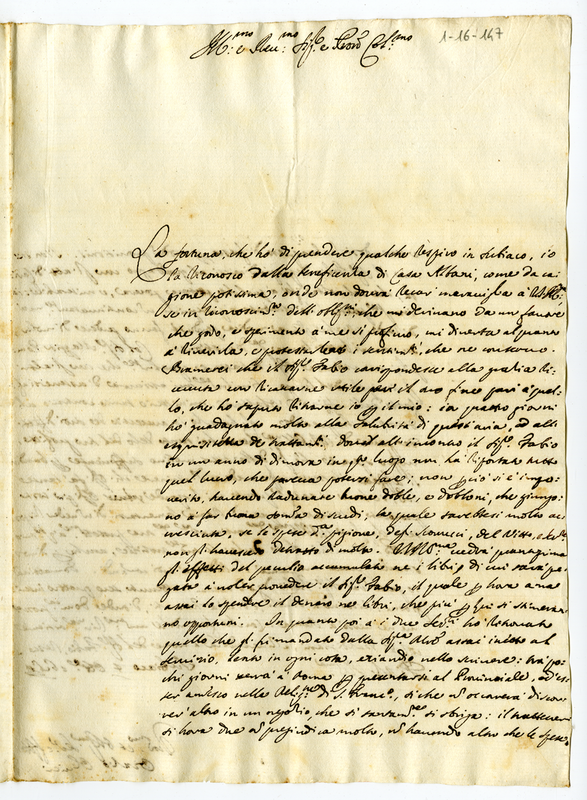 Ill.mo e Rev.mo Sig.r e Pron Col.mo
1-16-147
La fortuna, che hò di prendere qualche respiro in Subiaco, io
la riconosco dalla beneficenza di casa Albani, come da ca
gione potissima, onde non dovrà recar maraviglia à
se in riconoscim.to dell' oblig.ni che mi derivano da un favore
che godo, e sperimento à me sì proficuo, mi diverta alquanto
à riverirla, e protestarle i sentim.ti, che ne conservo.
Bramerei che il Sig.r Fabio corrispondesse alla grazia ri
cevuta con ricavarne utile pari il suo fine pari à quel
lo, che hò saputo ritrarne io p il mio: in quattro giorni
hò guadagnato molto alla salubrità di quest'aria, ed all'
de trattam.ti dove all'incontro il Sig.r Fabio
in un anno di dimora in q.to luogo non hà riportato tutto
quel lucro, che pareva potersi fare; non p ciò si è
havendo radunate buone doble, e dobloni, che giungo-
no à far buona somma di scudi, la quale sarebbesi molto ac
cresciuta, se le spese di pigione, del Vitto,
non gl' havessero detratto di molto. vedrà quanto prima
gl' effetti del peculio accumulato ne i libri, di cui
à voler provedere il Sig.r Fabio, il quale p hora ama
assai lo spendere il denaro ne libri, che più p lui si stimeran-
no opportuni. In quanto poi à i due hò ritrovato
quello che gl' fù mandato dalla assai inetto al
servizio, lento in ogni cosa, etiandio nello scrivere: trà po
chi giorni verrà à Roma p presentarsi al Provinciale, ed es
ser ammesso nella Relig.ne di S. Franc.o, si che n' occorerà discor
rer' altro in un negozio, che si sbriga: il trattenerne
si hora due n' pregiudica molto, n' havendo altro che le spese,